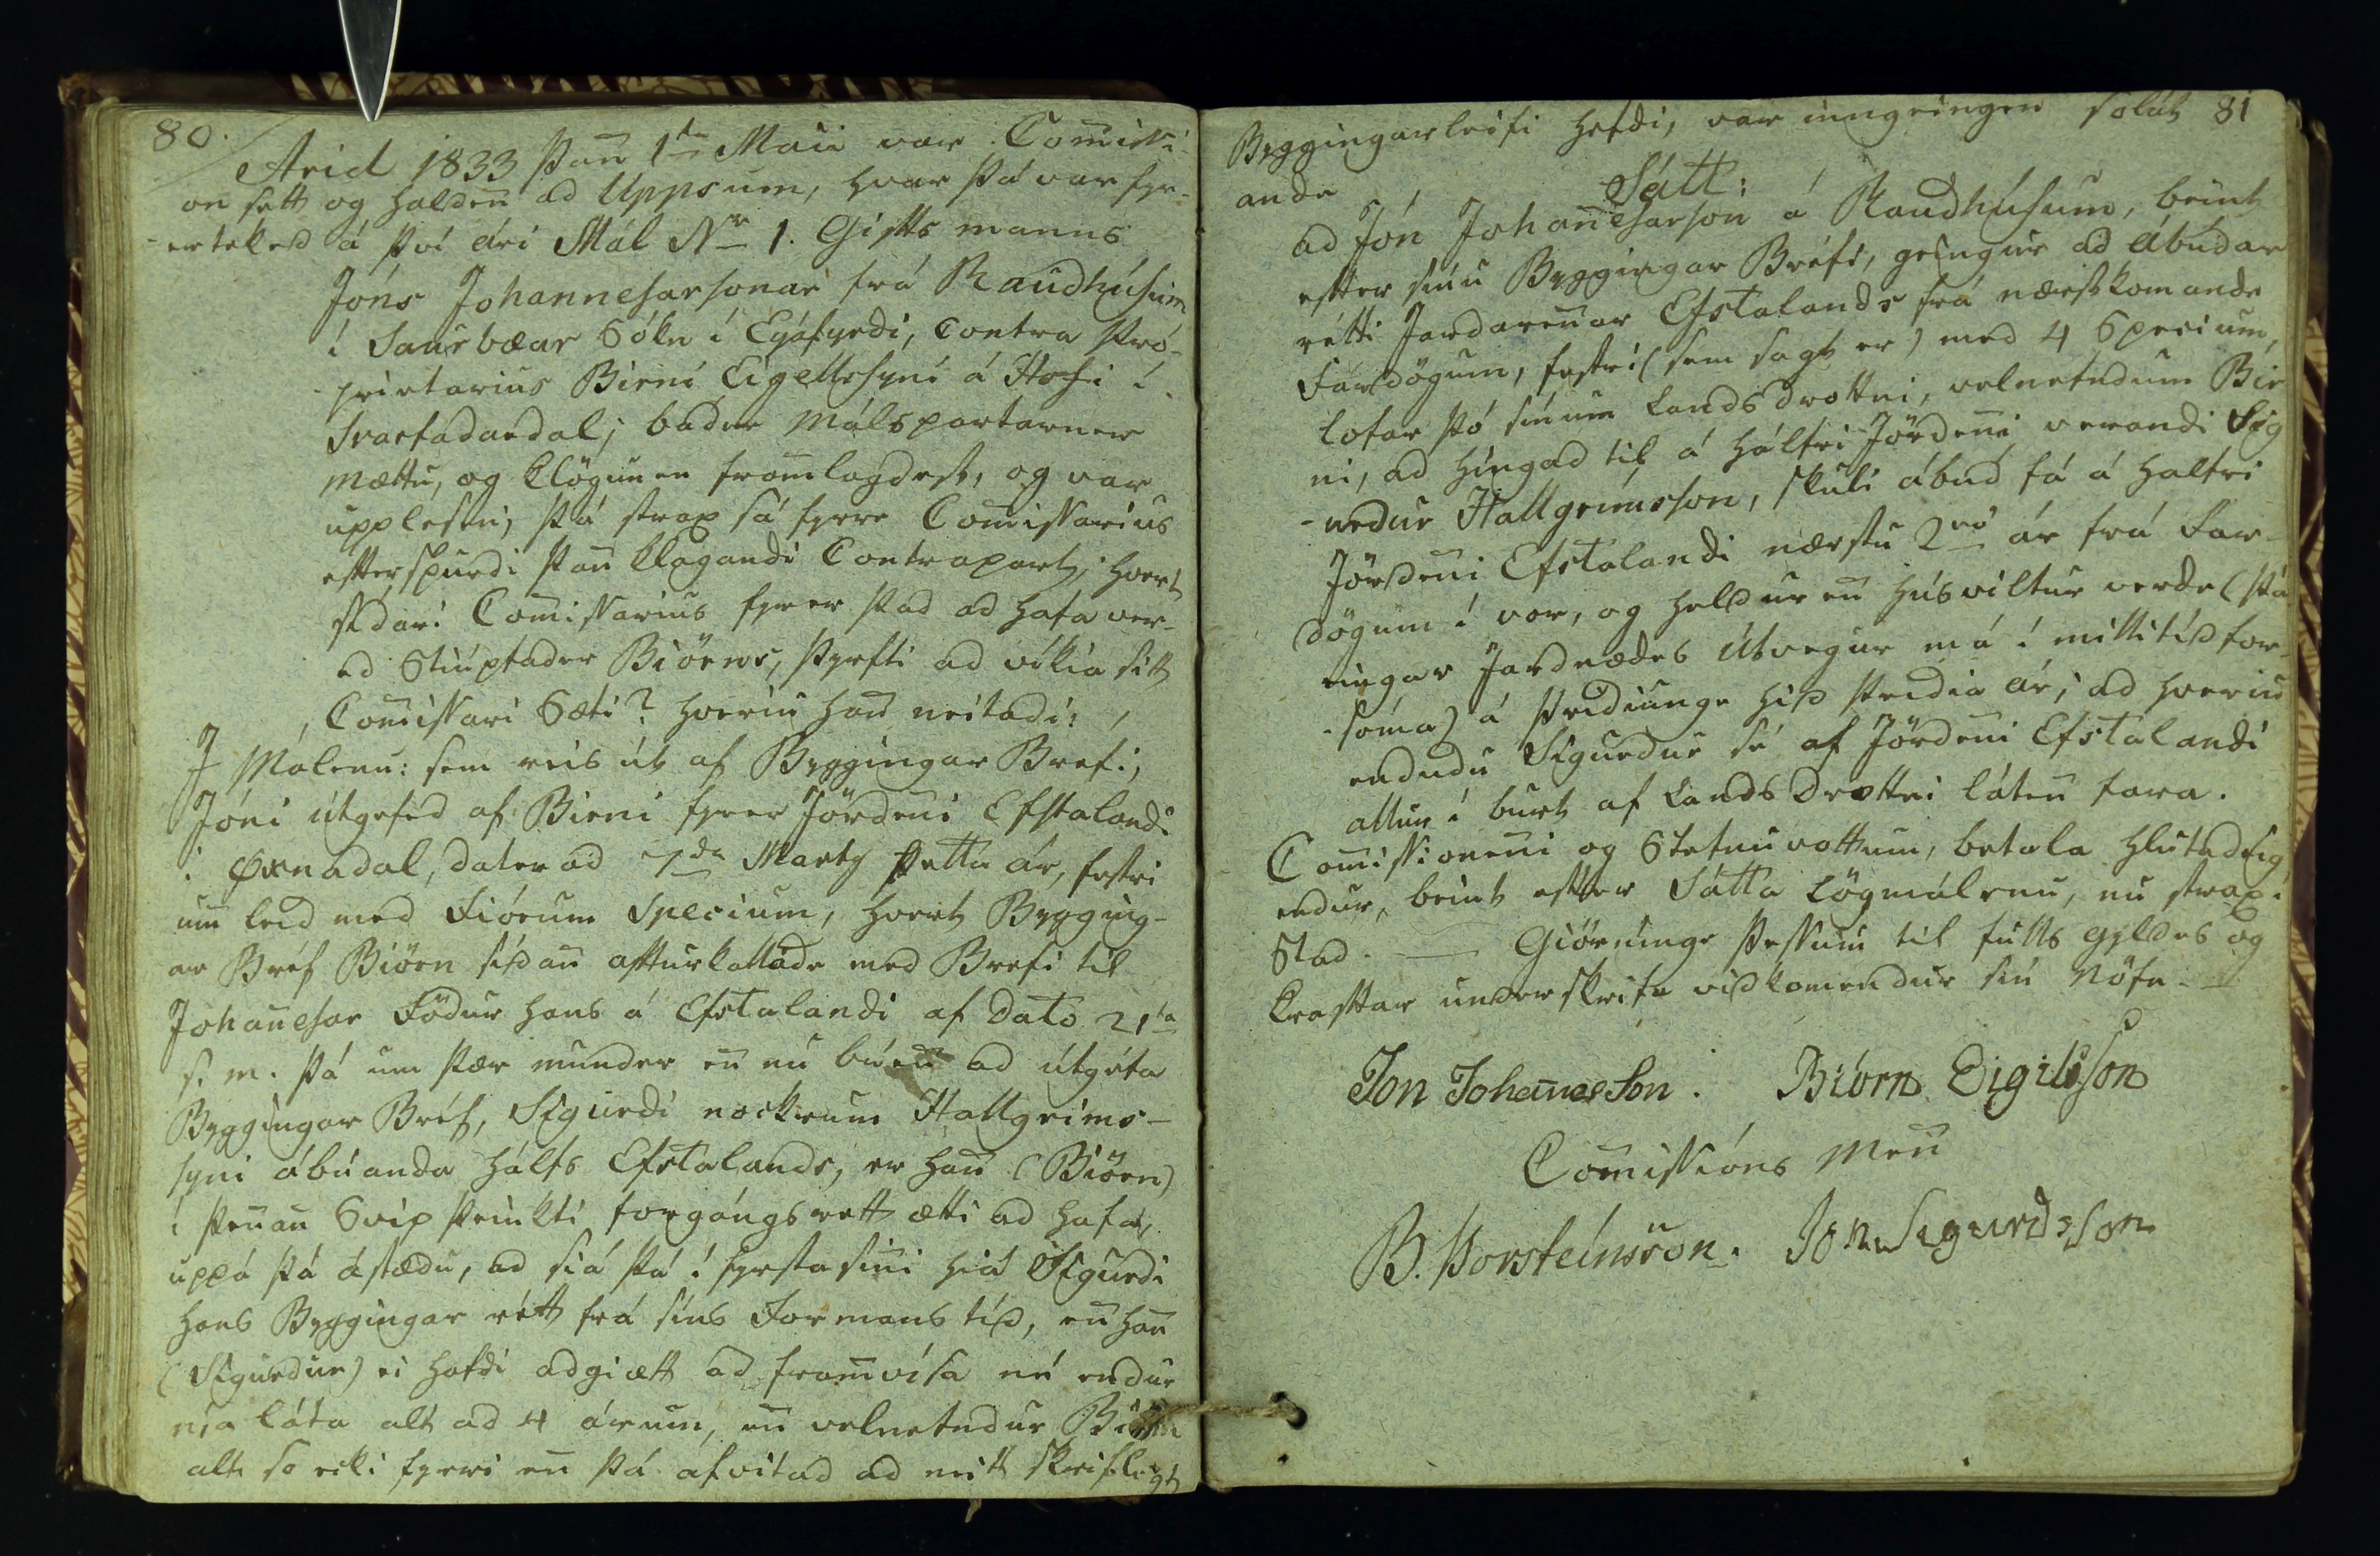 80.
Arid 1833 þan̄ 1ta Maii var Com̄issi-
on sett og halden̄ ad Uppsum, hvar þá var fyr-
ertekid á því ári Mál Nr 1. Giftts manns
Jóns Johannesarsonar frá Raudhúsum
í Saurbæar Sókn í Eyafyrdi, contra Pro-
prietarius Birni Eigellssyni á Hofi í
Svarfadardal; bádir málspartarner
mættu, og klögunen fram̄lagdest, og var
upplesen, þá strax sá fyrre Com̄issarius
effterspurdi þan̄ klagandi Contrapart, hvort
sídari Com̄issarius fyrer þad ad hafa ver-
ed Stiúpfader Biörns, þyrfti ad víkia sitt
Com̄issari Sæti? hveriu han̄ neitadi:
J Málenu: sem reis út af Byggingar Brefi,
Jóni útgefed af Birni fyrer Jördeni Efstalandi
í Øxnadal, daterad 7da Marty þetta ár, festri
um leid med fiórum Specium, hvert Bygging-
ar Bréf Biörn sídan̄ aftturkallade med Brefi til
Johan̄esar Födur hans á Efstalandi af dato 21ta
s. m. þá um þær munder en̄ nu búen̄ ad útgéfa
Byggingar Bréf, Sigurdi nockrum Hallgrims-
syni ábúanda hálfs Efstalands, er han̄ (Biörn)
í þen̄an Svip þeinkti forgángsrett ætti ad hafa,
uppá þá ástædu, ad siá þá í fyrsta sin̄i hiá Sigurdi
hans Byggingar rétt frá síns Formans tíd, en̄ han̄
(Sigurdur) ei hafdi adgiætt ad fram̄vísa né endur
nía láta alt ad 4 árum, en̄ velnefndur Biörn
alt so ecki fyrri en̄ þá afvitad ad neitt skriflegt
81
Byggingarleifi hefdi, var inngeingen solát
ande
Sátt:
ad Jón Johan̄esarson á Raudhúsum, beint
eftter sínu Byggingar Bréfi, geingur ad Ábúdar
rétti Jardaren̄ar Efstalands frá nærstkomande
Fardögum, festri (sem sagt er) med 4 Specium,
lofar þó sínum Landsdrottni, velnefndum Bir
ni, ad híngad til á hálfri Jörden̄i verandi Sig
-urdur Hallgrímsson, skuli ábúd fá á halfri
Jördeni Efstalandi nærstu 2vö ár frá Far-
dögum í vor, og heldur en̄ húsviltur verde (þá
eingar Jardnædes útvegur má í millitíd for-
sóma) á þridiunge hid þridia ár; ad hveriu
endudu Sigurdur sé af Jördeni Efstalandi
allur í burt af Lands Drottni láten̄ fara.
Com̄issionen̄i og Stefnuvottum, betala hlutadeig
endur, beint eftter Sátta Lögmálenu, nu strax í
Stad. — Giörninge þessum til fulls gyldes og
krafttar underskrifa vidkomendur sín Nöfn.
Jon JohanesSon. Biörn EigilsSon
Com̄issións Men̄
B. Þorsteinsson. Jon Sigurdsson